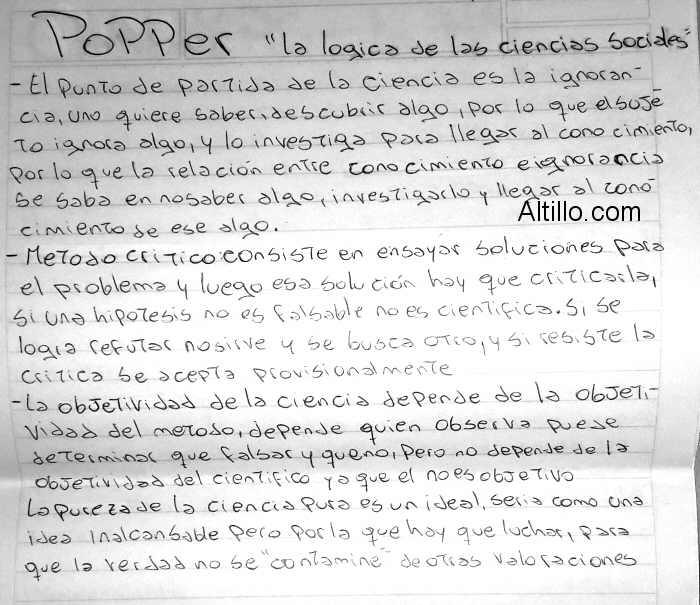 POPPer "la logica de las ciencias sociales"
- El punto de partida de la ciencia es la ignoran-
cia, uno quiere saber, descubrir algo, por lo que el suje
to ignora algo, y lo investiga para llegar al cono cimiento,
por lo que la relación entre conocimiento e ignorancia
se saba en no saber algo, investigarlo y llegar al cono
cimiento de ese algo.
Altillo.com
- Metodo critico: consiste en ensayar soluciones para
el problema y luego esa solución hay que criticarla,
si una hipotesis no es falsable no es cientifica. Si se
logra refutar no sirve y se busca otro, y si resiste la
critica se acepta provisionalmente
- La objetividad de la ciencia depende de la objeti-
vidad del metodo, depende quien observa puede
determinar que falsar y que no, pero no depende de la
objetividad del cientifico ya que el no es objetivo
La pureza de la ciencia pura es un ideal, seria como una
idea inalcansable pero por la que hay que luchar, para
que la verdad no se "contamine" de otras valoraciones